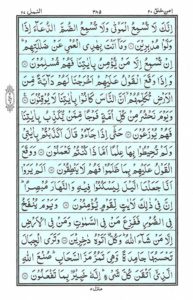 امن خلق ٢٠ ٣٨٥ النمل ٢٧
اِنَّكَ لَا تُسْمِعُ الْمَوْتٰى وَلَا تُسْمِعُ الصُّمَّ الدُّعَآءَ اِذَا
وَلَّوْا مُدْبِرِيْنَ ۝ وَمَآ اَنْتَ بِهٰدِى الْعُمْىِ عَنْ ضَلٰلَتِهِمْ
اِنْ تُسْمِعُ اِلَّا مَنْ يُّؤْمِنُ بِاٰيٰتِنَا فَهُمْ مُّسْلِمُوْنَ ۝
وَاِذَا وَقَعَ الْقَوْلُ عَلَيْهِمْ اَخْرَجْنَا لَهُمْ دَآبَّةً مِّنَ
الْاَرْضِ تُكَلِّمُهُمْ اَنَّ النَّاسَ كَانُوْا بِاٰيٰتِنَا لَا يُوْقِنُوْنَ ۝
وَيَوْمَ نَحْشُرُ مِنْ كُلِّ اُمَّةٍ فَوْجًا مِّمَّنْ يُّكَذِّبُ بِاٰيٰتِنَا
فَهُمْ يُوْزَعُوْنَ ۝ حَتّٰٓى اِذَا جَآءُوْ قَالَ اَكَذَّبْتُمْ بِاٰيٰتِىْ
وَلَمْ تُحِيْطُوْا بِهَا عِلْمًا اَمَّاذَا كُنْتُمْ تَعْمَلُوْنَ ۝ وَوَقَعَ
الْقَوْلُ عَلَيْهِمْ بِمَا ظَلَمُوْا فَهُمْ لَا يَنْطِقُوْنَ ۝ اَلَمْ يَرَوْا
اَنَّا جَعَلْنَا الَّيْلَ لِيَسْكُنُوْا فِيْهِ وَالنَّهَارَ مُبْصِرًا
اِنَّ فِىْ ذٰلِكَ لَاٰيٰتٍ لِّقَوْمٍ يُّؤْمِنُوْنَ ۝ وَيَوْمَ يُنْفَخُ
فِى الصُّوْرِ فَفَزِعَ مَنْ فِى السَّمٰوٰتِ وَمَنْ فِى الْاَرْضِ
اِلَّا مَنْ شَآءَ اللّٰهُ وَكُلٌّ اَتَوْهُ دَاخِرِيْنَ ۝ وَتَرَى الْجِبَالَ
تَحْسَبُهَا جَامِدَةً وَّهِىَ تَمُرُّ مَرَّ السَّحَابِ صُنْعَ اللّٰهِ
الَّذِىْٓ اَتْقَنَ كُلَّ شَىْءٍ اِنَّهٗ خَبِيْرٌۢ بِمَا تَفْعَلُوْنَ ۝
منزل ٥